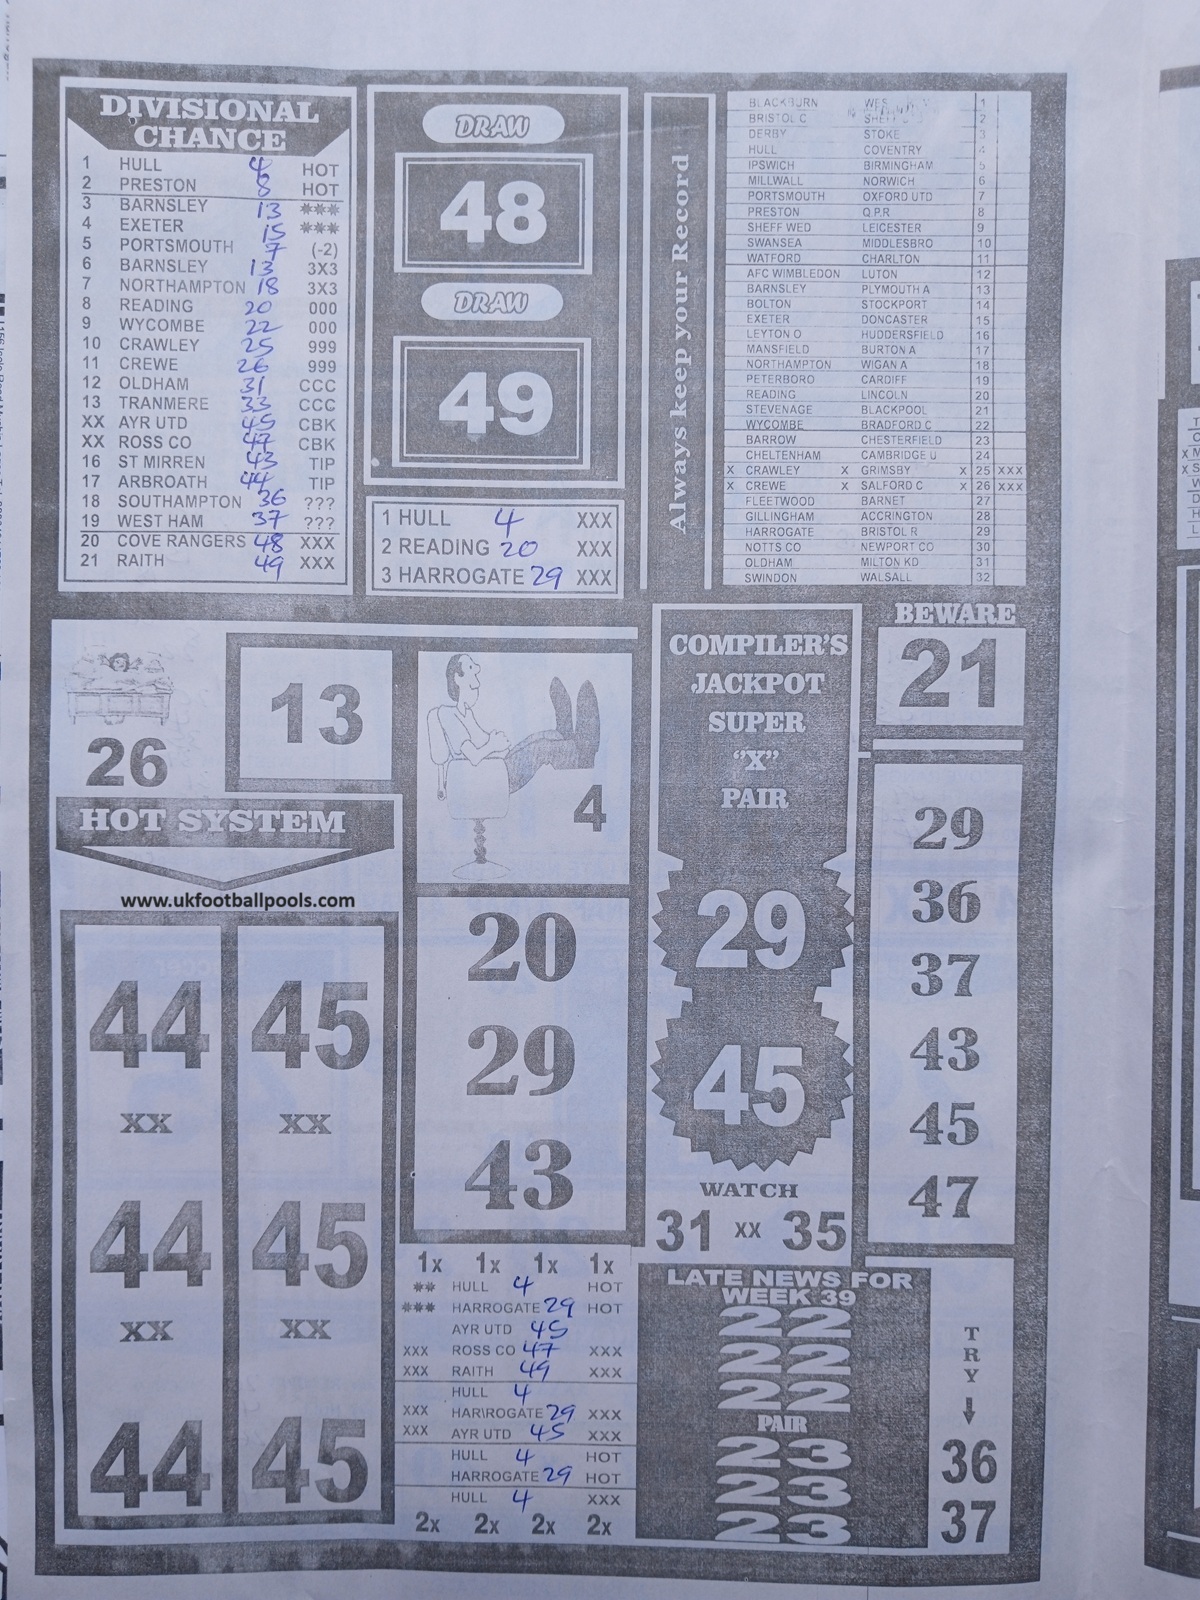 DIVISIONAL
CHANCE
1 HULL 4 HOT
2 PRESTON 8 HOT
3 BARNSLEY 13 ***
4 EXETER 15 ***
5 PORTSMOUTH 7 (-2)
6 BARNSLEY 13 3X3
7 NORTHAMPTON 18 3X3
8 READING 20 000
9 WYCOMBE 22 000
10 CRAWLEY 25 999
11 CREWE 26 999
12 OLDHAM 31 CCC
13 TRANMERE 33 CCC
XX AYR UTD 45 CBK
XX ROSS CO 47 CBK
16 ST MIRREN 43 TIP
17 ARBROATH 44 TIP
18 SOUTHAMPTON 36 ???
19 WEST HAM 37 ???
20 COVE RANGERS 48 XXX
21 RAITH 49 XXX
DRAW
48
DRAW
49
1 HULL 4 XXX
2 READING 20 XXX
3 HARROGATE 29 XXX
Always keep your Record
BLACKBURN 1
BRISTOL C 2
DERBY STOKE 3
HULL COVENTRY 4
IPSWICH BIRMINGHAM 5
MILLWALL NORWICH 6
PORTSMOUTH OXFORD UTD 7
PRESTON Q.P.R 8
SHEFF WED LEICESTER 9
SWANSEA MIDDLESBRO 10
WATFORD CHARLTON 11
AFC WIMBLEDON LUTON 12
BARNSLEY PLYMOUTH A 13
BOLTON STOCKPORT 14
EXETER DONCASTER 15
LEYTON O HUDDERSFIELD 16
MANSFIELD BURTON A 17
NORTHAMPTON WIGAN A 18
PETERBORO CARDIFF 19
READING LINCOLN 20
STEVENAGE BLACKPOOL 21
WYCOMBE BRADFORD C 22
BARROW CHESTERFIELD 23
CHELTENHAM CAMBRIDGE U 24
X CRAWLEY X GRIMSBY X 25 XXX
X CREWE X SALFORD C X 26 XXX
FLEETWOOD BARNET 27
GILLINGHAM ACCRINGTON 28
HARROGATE BRISTOL R 29
NOTTS CO NEWPORT CO 30
OLDHAM MILTON KD 31
SWINDON WALSALL 32
26
13
4
HOT SYSTEM
www.ukfootballpools.com
44 45
XX XX
44 45
XX XX
44 45
20
29
43
1x 1x 1x 1x
** HULL 4 HOT
*** HARROGATE 29 HOT
AYR UTD 45
XXX ROSS CO 47 XXX
XXX RAITH 49 XXX
HULL 4
XXX HARROGATE 29 XXX
XXX AYR UTD 45 XXX
HULL 4 HOT
HARROGATE 29 HOT
HULL 4 XXX
2x 2x 2x 2x
COMPILER'S
JACKPOT
SUPER
"X"
PAIR
29
45
WATCH
31 XX 35
BEWARE
21
29
36
37
43
45
47
LATE NEWS FOR
WEEK 39
22
22
22
PAIR
23
23
23
TRY
36
37